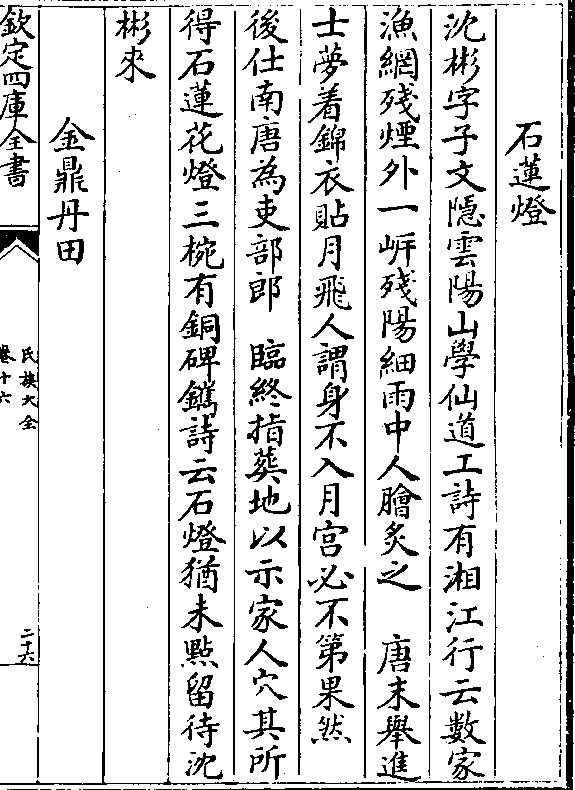 石蓮燈
沈彬字子文隱雲陽山學仙道工詩有湘江行云數家
漁網殘煙外一岍殘陽細雨中人膾炙之　唐末舉進
士夢着錦衣貼月飛人謂身不入月宮必不第果然
後仕南唐為吏部郎　臨終指葬地以示家人穴其所
得石蓮花燈三椀有銅碑鐫詩云石燈猶未點留待沈
彬來
金鼎丹田
欽定四庫全書
氏族大全
卷十六
二十六